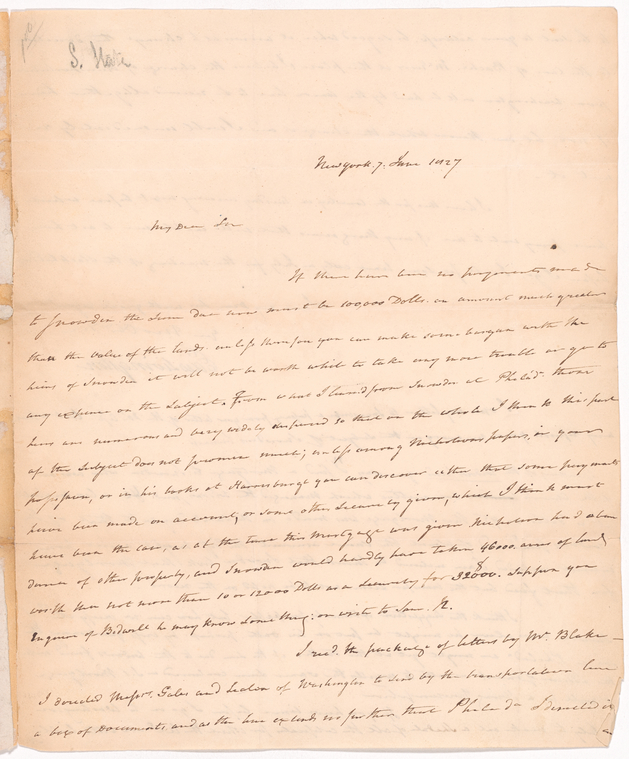 S. Hare
New York. 7. June 1827
My Dear Sir
If there have been no payments made
to Snowden the Sum due now must be 100,000 Dolls. an amount much greater
than the value of the lands. unless therefore you can make some bargain with the
heirs of Snowden it will not be worth while to take any more trouble or go to
any expence on the Subject. From what I learned from Snowden at Philad. these
heirs are numerous and very widely dispersed so that on the whole I this part
of the Subject does not promise much; unless among Nicholsons papers, in your
possession, or in his books at Harrisburgh you can discover either that some payments
have been made on account, or some other Security given, which I think must
have been the case, as at the time this mortgage was given Nicholson had
of other property, and Snowden would hardly have taken 46000 acres of land
worth then not more than 10 or 12000 Dolls as a Security for Suppose you
Inquire of Bidwell he may know something: or write to
I recd. the package of letters by Mr. Blake—
I directed Messrs. Gales and Seaton of Washington to send by the transportation line
a box of Documents, and as the line extends no further than Philada I directed it